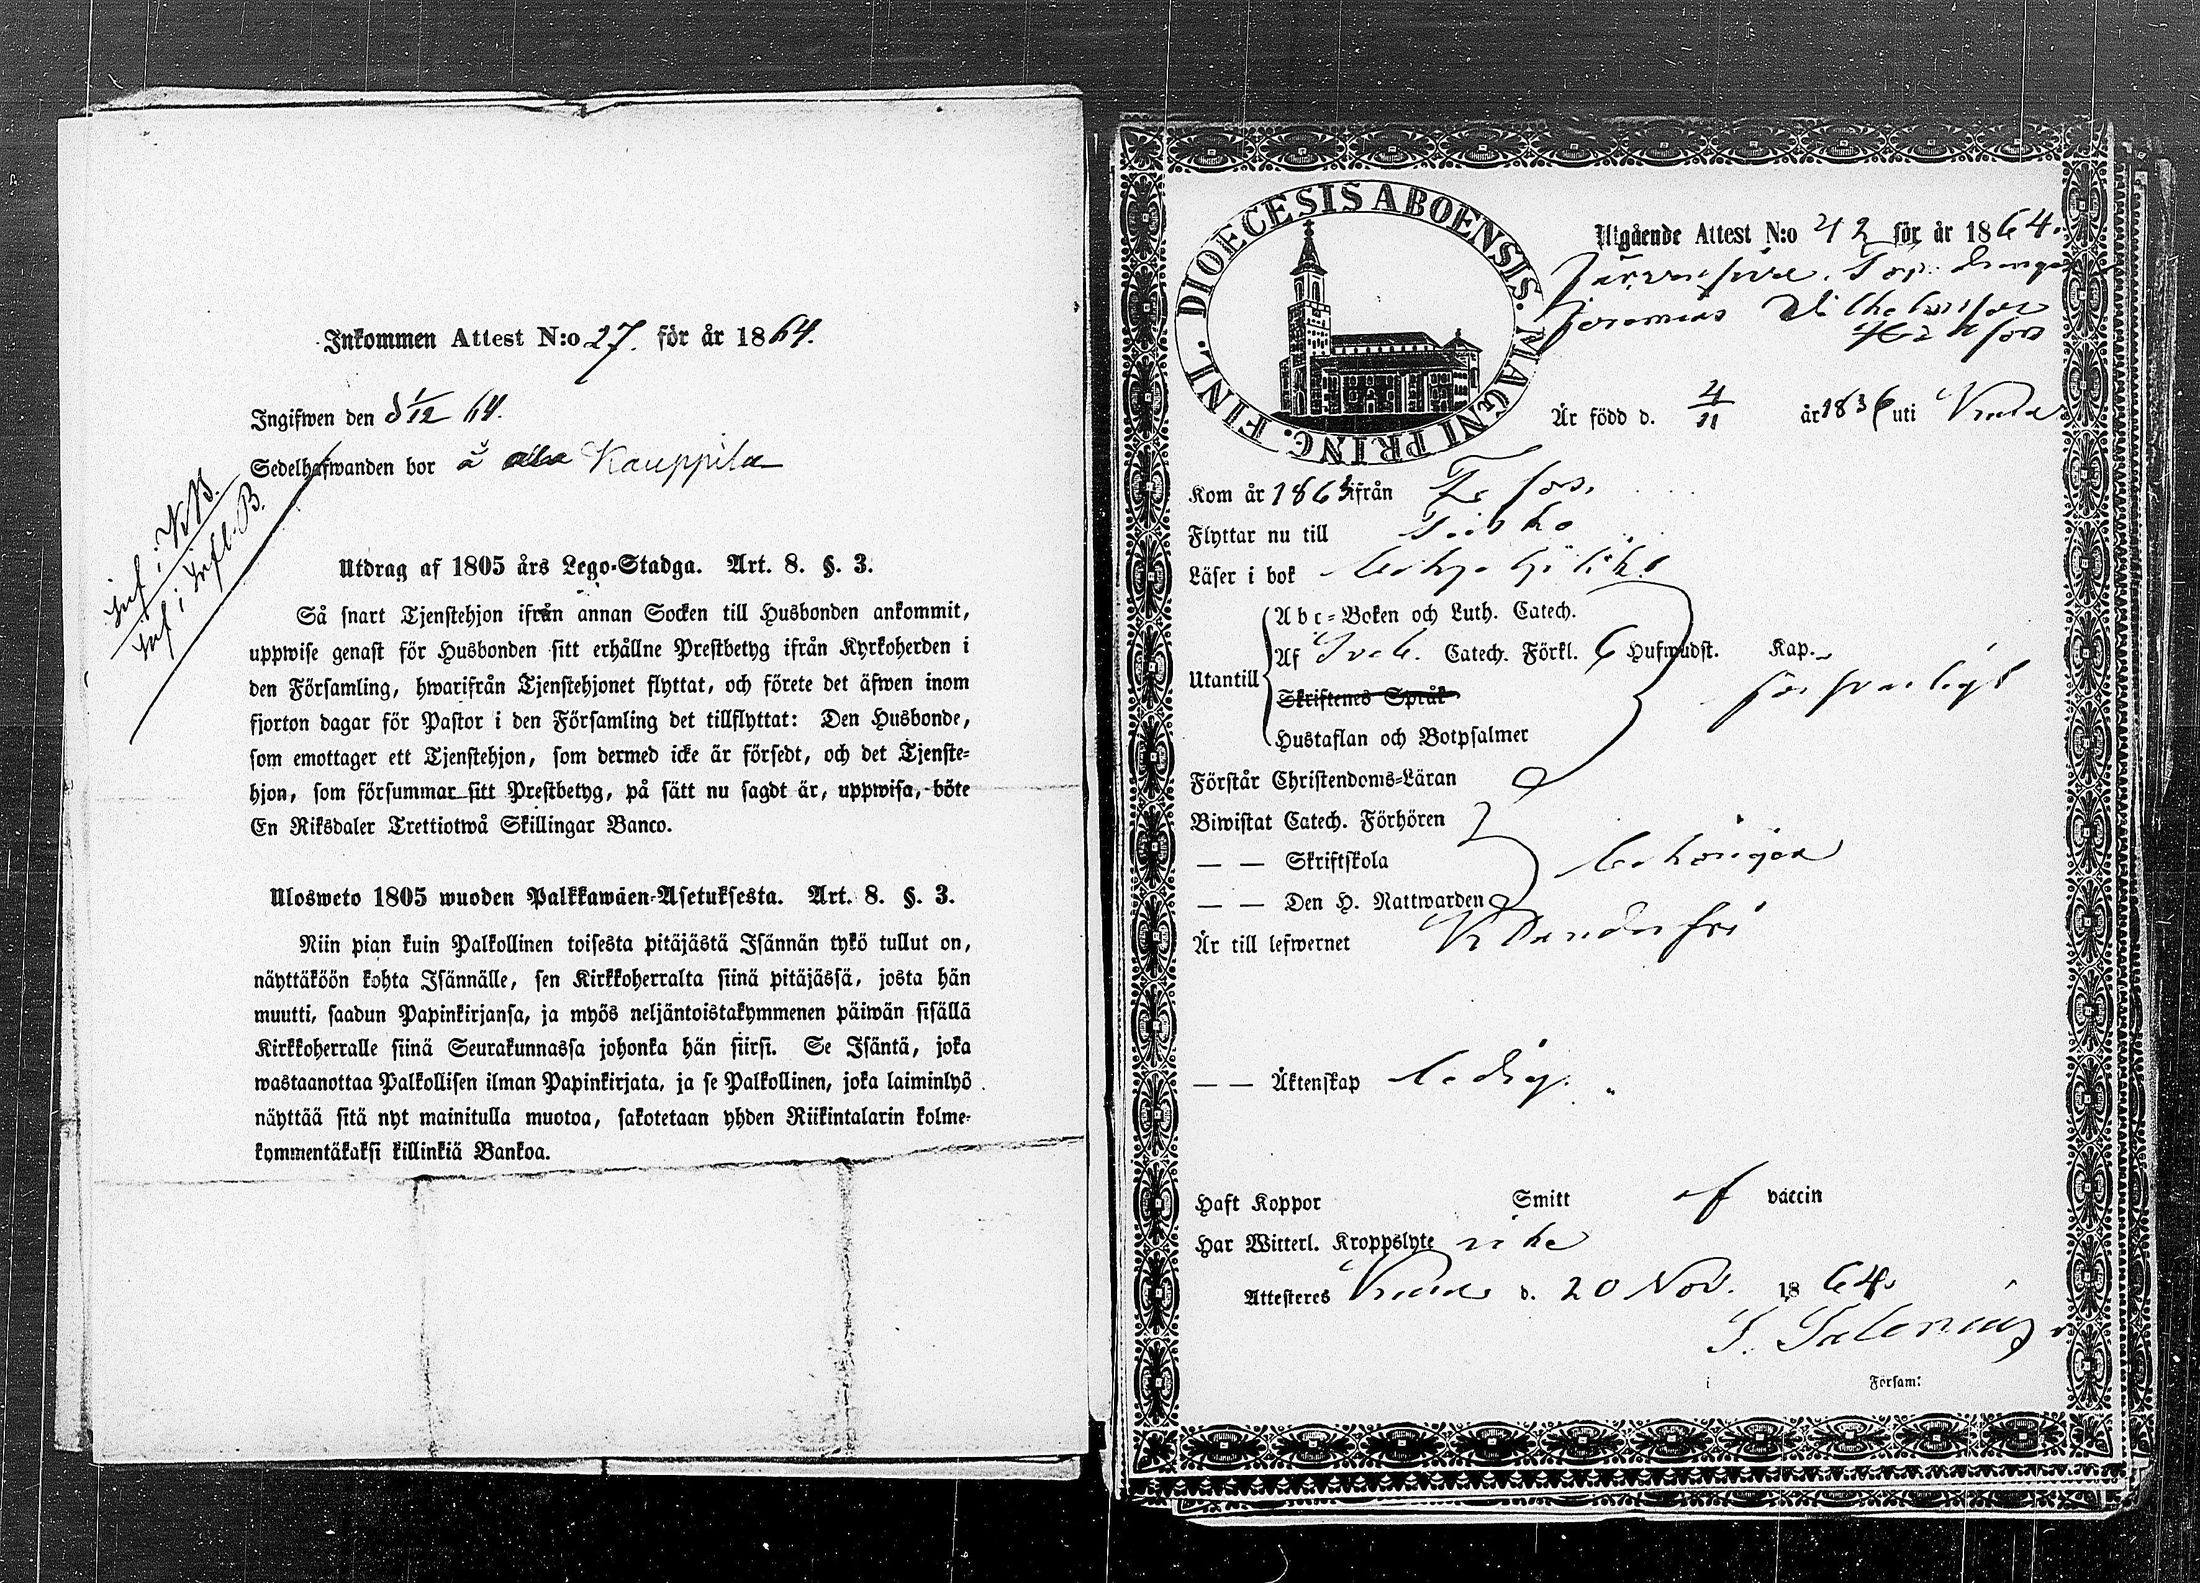 Inkommen Attest N:o 27. för år 1864.
Ingifwen den d 1/12 64.
Sedelhafwanden bor å Kauppila
Inf. i KB.
Inf. i Infl. B.
Utdrag af 1805 års Lego-Stadga. Art. 8. §. 3.
Så snart Tjenstehjon ifrån annan Socken till Husbonden ankommit,
uppwise genast för Husbonden sitt erhållne Prestbetyg ifrån Kyrkoherden i
den Församling, hwarifrån Tjenstehjonet flyttat, och förete det äfwen inom
fjorton dagar för Pastor i den Församling det tillflyttat: Den Husbonde,
som emottager ett Tjenstehjon, som dermed icke är försedt, och det Tjenste-
hjon, som försummar sitt Prestbetyg, på sätt nu sagdt är, uppwisa, böte
En Riksdaler Trettiotwå Skillingar Banco.
Ulosweto 1805 wuoden Palkkawäen-Asetuksesta. Art. 8. §. 3.
Niin pian kuin Palkollinen toisesta pitäjästä Isännän tykö tullut on,
näyttäköön kohta Isännälle, sen Kirkkoherralta siinä pitäjässä, josta hän
muutti, saadun Papinkirjansa, ja myös neljäntoistakymmenen päiwän sisällä
Kirkkoherralle siinä Seurakunnassa johonka hän siirsi. Se Isäntä, joka
wastaanottaa Palkollisen ilman Papinkirjata, ja se Palkollinen, joka laiminlyö
näyttää sitä nyt mainitulla muotoa, sakotetaan yhden Riikintalarin kolme-
kymmentäkaksi killinkiä Bankoa.
DIOECESIS ABOENSIS. MAGNI PRINC. FINL.
Utgående Attest N:o 42 för år 1864.
Jeremias Wilhelmsson
Är född d. 4/11 år 1836 uti
Kom år 1863 ifrån
Flyttar nu till Teisko
Läser i bok
Abc-Boken och Luth. Catech.
Utantill Af Sveb. Catech. Förkl. 6 Hufwudst. Kap.
försvarligt
Skriftenes Språk
Hustaflan och Botpsalmer
Förstår Christendoms-Läran
Biwistat Catech. Förhören
— — Skriftskola behörigen
— — Den H. Nattwarden
Är till lefwernet Klanderfri
— — Äktenskap ledig.
Haft Koppor Smitt af vaccin
Har Witterl. Kroppslyte icke
Attesteres d. 20 Nov. 1864.
Salenius
i Försam: